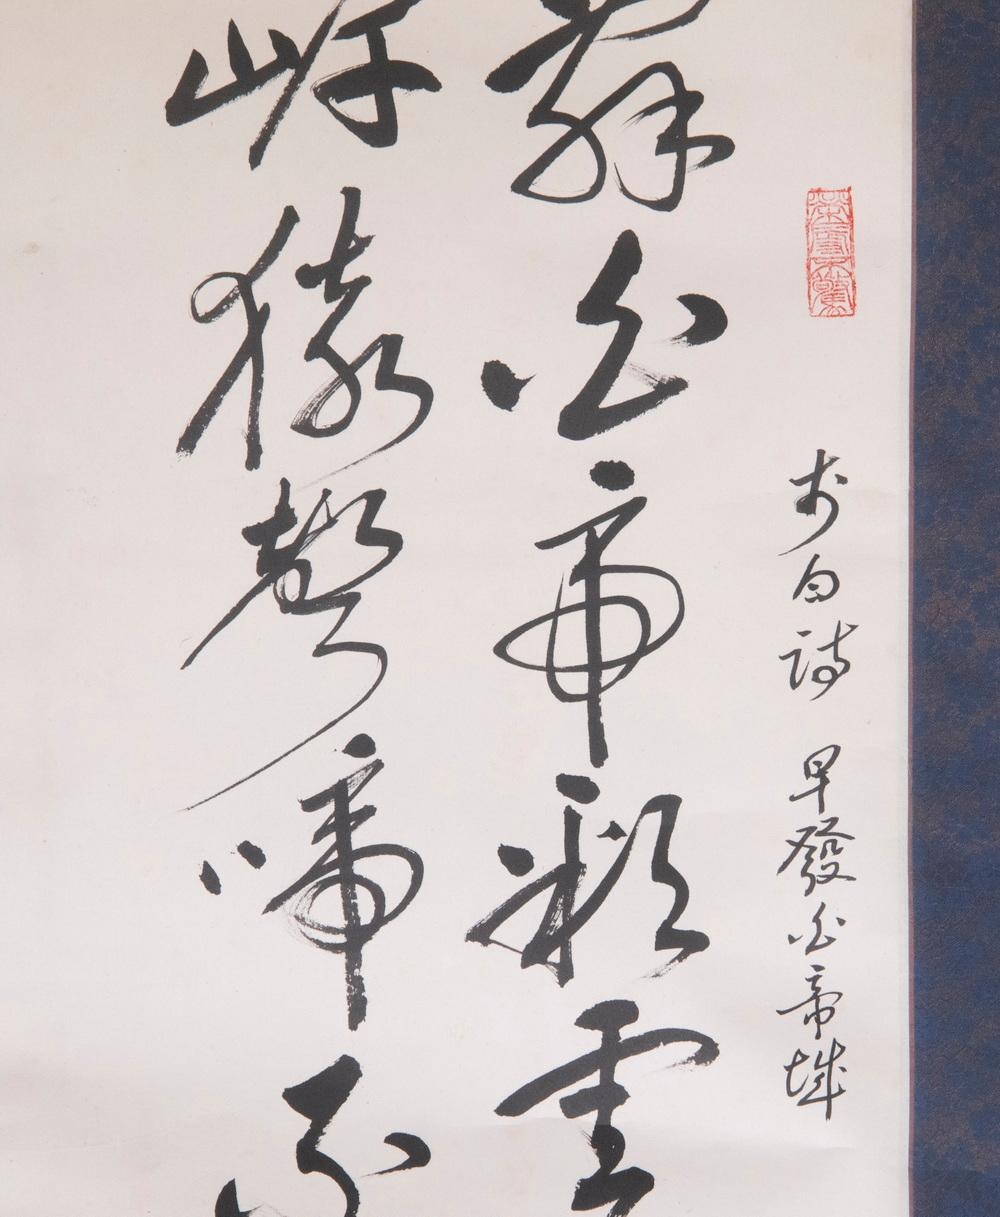 李白詩 早發白帝城
辭白帝彩雲
岸猿聲啼不